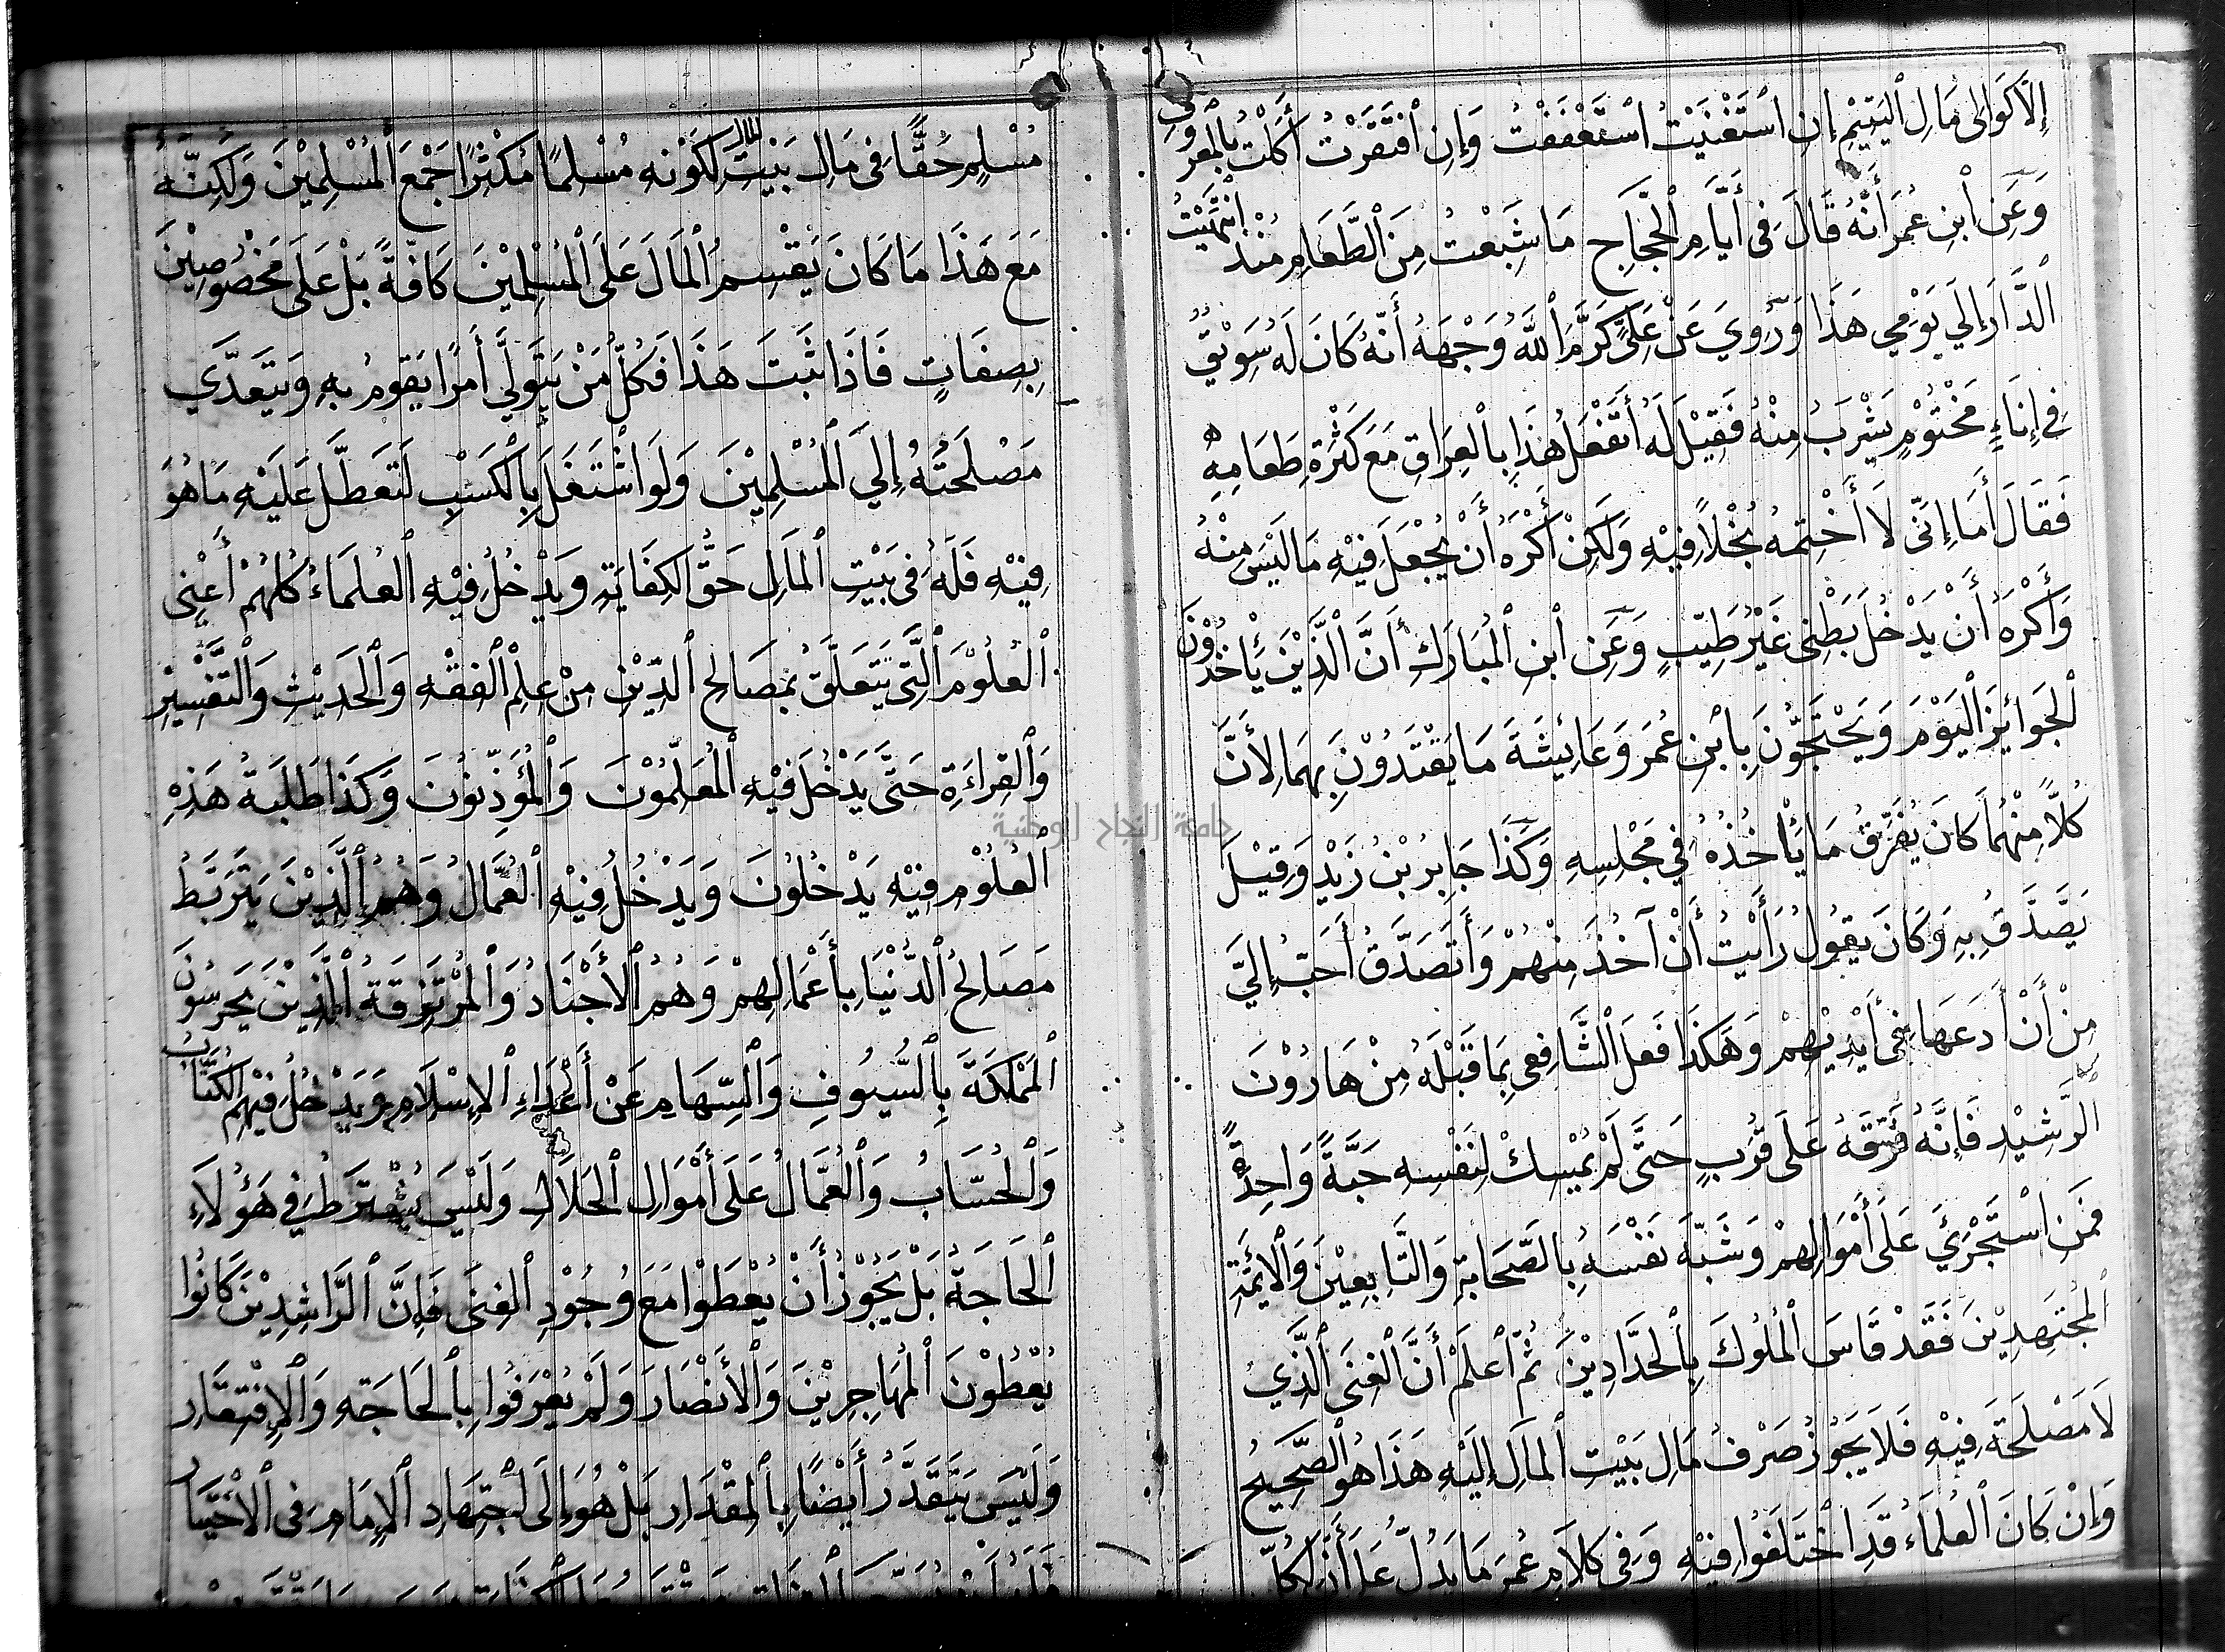 إِلاَّ كَوَالِى مَالِ ٱلْيَتِيْمِ إِنِ ٱسْتَغْنَيْتُ ٱسْتَعْفَفْتُ وَإِنِ ٱفْتَقَرْتُ أَكَلْتُ بِالْمَعْرُوفِ
وَعَنِ ٱبْنِ عُمَرَ أَنَّهُ قَالَ فِى أَيَّامِ ٱلْحَجَّاجِ مَا شَبِعْتُ مِنَ ٱلطَّعَامِ مُنْذُ ٱنْتَهَيْتُ
ٱلدَّارَ إِلَي يَوْمِي هَذَا وَرُوِيَ عَنْ عَلِيٍّ كَرَّمَ ٱللّٰهُ وَجْهَهُ أَنَّهُ كَانَ لَهُ سَوِيْقٌ
فِي إِنَاءٍ مَخْتُوْمٍ يَشْرَبُ مِنْهُ فَقِيْلَ لَهُ أَتَفْعَلُ هَذَا بِالْعِرَاقِ مَعَ كَثْرَةِ طَعَامِهِ
فَقَالَ أَمَا إِنِّى لَا أَخْتِمُهُ بُخْلاً فِيْهِ وَلَكِنْ أَكْرَهُ أَنْ يُجْعَلَ فِيْهِ مَا لَيْسَ مِنْهُ
وَأَكْرَهُ أَنْ يَدْخُلَ بَطْنِى غَيْرُ طَيِّبٍ وَعَنِ ٱبْنِ ٱلْمُبَارَكِ أَنَّ ٱلَّذِيْنَ يَأْخُذُوْنَ
ٱلْجَوَائِزَ ٱلْيَوْمَ وَيَحْتَجُّوْنَ بِابْنِ عُمَرَ وَعَائِشَةَ مَا يَقْتَدُوْنَ بِهِمَا لِأَنَّ
كُلاًّ مِنْهُمَا كَانَ يُفَرِّقُ مَا يَأْخُذُهُ فِي مَجْلِسِهِ وَكَذَا جَابِرُ بْنُ زَيْدٍ وَقِيْلَ
يَصَّدَّقُ بِهِ وَكَانَ يَقُولُ رَأَيْتُ أَنْ آخُذَ مِنْهُمْ وَأَتَصَدَّقُ أَحَبُّ إِلَيَّ
مِنْ أَنْ أَدَعَهَا فِى أَيْدِيْهِمْ وَهَكَذَا فَعَلَ ٱلشَّافِعِى بِمَا قَبِلَهُ مِنْ هَارُوْنَ
الرَّشِيْدِ فَإِنَّهُ فَرَّقَهُ عَلَى قُرْبٍ حَتَّى لَمْ يُمْسِكْ لِنَفْسِهِ حَبَّةً وَاحِدَةً
فَمَنِ اسْتَجْرَئَ عَلَى أَمْوَالِهِمْ وَشَبَّهَ نَفْسَهُ بِالصَّحَابَةِ وَالتَّابِعِيْنَ وَالْأَئِمَّةِ
ٱلْمُجْتَهِدِيْنَ فَقَدْ قَاسَ ٱلْمُلُوكَ بِالْحَدَّادِيْنَ ثُمَّ ٱعْلَمْ أَنَّ الْغِنَى ٱلَّذِي
لَا مَصْلَحَةَ فِيْهِ فَلَا يَجُوْزُ صَرْفُ مَالِ بَيْتِ ٱلْمَالِ إِلَيْهِ هَذَا هُوَ ٱلصَّحِيحُ
وَإِنْ كَانَ ٱلْعُلَمَاءُ قَدِ اخْتَلَفُوا فِيْهِ وَفِى كَلَامِ عُمَرَ مَا يَدُلُّ عَلَى أَنَّ لِكُلِّ
مُسْلِمٍ حَقًّا فِى مَالِ بَيْتِ المال لِكَوْنِهِ مُسْلِمًا مُكَثِّرًا جَمْعَ ٱلْمُسْلِمِيْنَ وَلَكِنَّهُ
مَعَ هَذَا مَا كَانَ يَقْسِمُ ٱلْمَالَ عَلَى ٱلْمُسْلِمِيْنَ كَافَّةً بَلْ عَلَى مَخْصُوصِيْنَ
بِصِفَاتٍ فَاِذَا ثَبَتَ هَذَا فَكُلُّ مَنْ يَتَوَلَّي أَمْرًا يَقُومُ بِهِ وَيَتَعَدَّي
مَصْلَحَتُهُ إِلَي ٱلْمُسْلِمِيْنَ وَلَوِ اشْتَغَلَ بِالْكَسْبِ لَتَعَطَّلَ عَلَيْهِ مَا هُوَ
فِيْهِ فَلَهُ فِى بَيْتِ ٱلْمَالِ حَقُّ الكِفَايَةِ وَيَدْخُلُ فِيْهِ ٱلْعُلَمَاءُ كُلُّهُمْ أَعْنِى
ٱلْعُلُوْمَ ٱلَّتِى تَتَعَلَّقُ بِمَصَالِحِ ٱلدِّيْنِ مِنْ عِلْمِ ٱلْفِقْهِ وَٱلْحَدِيْثِ وَٱلتَّفْسِيْرِ
وَٱلْقِرَاءَةِ حَتَّى يَدْخُلَ فِيْهِ ٱلْمُعَلِّمُوْنَ وَٱلْمُؤَذِّنُوْنَ وَكَذَا طَلَبَةُ هَذِهِ
ٱلْعُلُوْمِ فِيْهِ يَدْخُلُوْنَ وَيَدْخُلُ فِيْهِ ٱلْعُمَّالُ وَهُمُ ٱلَّذِيْنَ يَتَرَبَّطُ
مَصَالِحُ ٱلدُّنْيَا بِأَعْمَالِهِمْ وَهُمُ ٱلْأَجْنَادُ وَٱلْمُرْتَزِقَةُ ٱلَّذِيْنَ يَحْرُسُوْنَ
ٱلْمَمْلَكَةَ بِالسُّيُوفِ وَٱلسِّهَامِ عَنْ أَعْدَاءِ ٱلْإِسْلَامِ وَيَدْخُلُ فِيْهِمُ ٱلْكُتَّابُ
وَٱلْحُسَّابُ وَٱلْعُمَّالُ عَلَى أَمْوَالِ ٱلْحَلَالِ وَلَيْسَ يُشْتَرَطُ فِي هَؤُلَاءِ
ٱلْحَاجَةُ بَلْ يَجُوْزُ أَنْ يُعْطَوْا مَعَ وُجُوْدِ ٱلْغِنَى فَإِنَّ ٱلرَّاشِدِيْنَ كَانُوا
يُعْطُوْنَ ٱلْمُهَاجِرِيْنَ وَٱلْأَنْصَارَ وَلَمْ يُعْرَفُوا بِالْحَاجَةِ وَٱلْاِفْتِقَارِ
وَلَيْسَ يَتَقَدَّرُ أَيْضًا بِالْمِقْدَارِ بَلْ هُوَ إِلَى ٱجْتِهَادِ ٱلْإِمَامِ فِى ٱلْاخْتِيَارِ
جامعة النجاح الوطنية